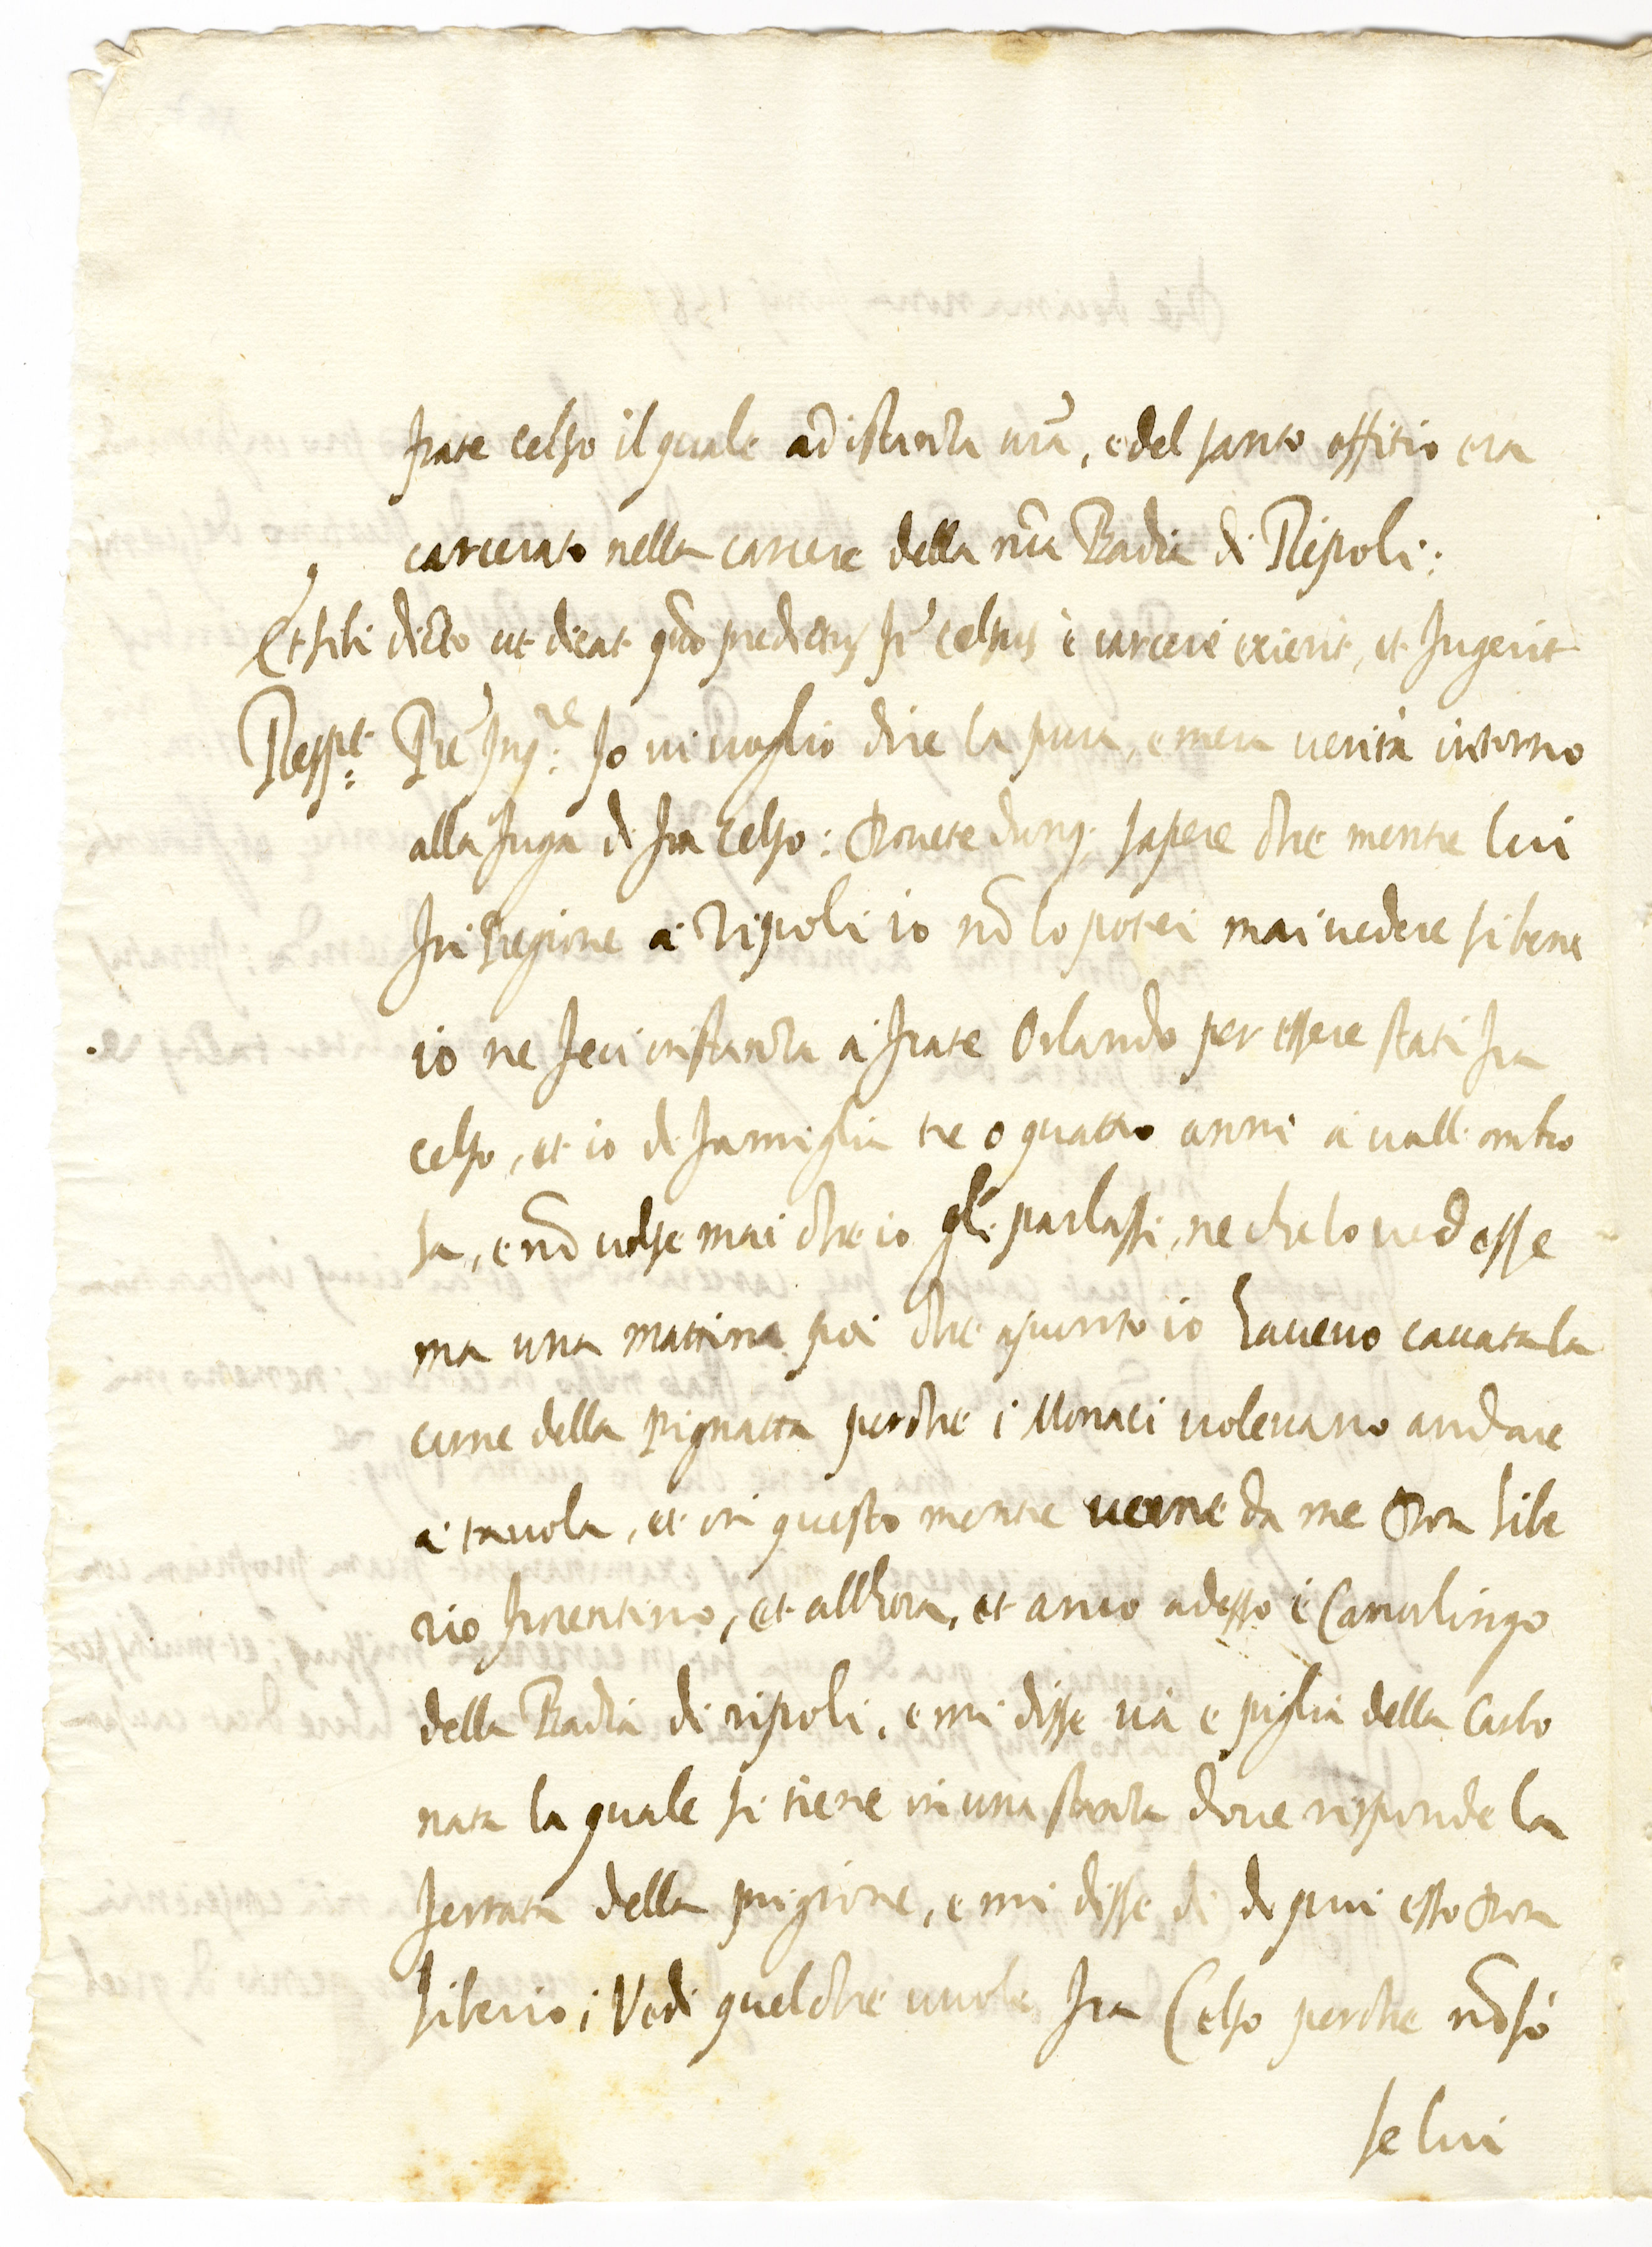 frate celso il quale ad istantia vr̃a, e del santo offitio era
carcerato nella carcere della nr̃a Badia di Ripoli:
Et sibi dicto ut dicat qño predictus fr̃ Celsus è carcere exierit, et fugerit
Resp.t Pr̃e Inq.re Io vi voglio dire la pura, e mera verità intorno
alla fuga di fra Celso: Dovete dunq; sapere che mentre lui
fu Pregione à Ripoli io nõ lo potei mai vedere si bene
io ne feci instantia à frate Orlando per essere stati fra
celso, et io di famiglia tre o quattro anni à vall'ombro
sa, e nõ volse mai che io gli parlassi, ne che lo vedesse
ma una mattina poi che apunto io haveuo cavata la
carne della pignatta perche i Monaci volevano andare
à tavola, et in questo mentre venne da me Don Tibe
rio fiorentino, et allhora, et anco adesso è Camarlingo
della Badia di ripoli, e mi disse và e piglia della Carbo
nata la quale si tiene in una stantia dove risponde la
ferrata della prigione, e mi disse di di piu esso Don
Tiberio; Vedi quelche vuole fra Celso perche nõ sò
se lui